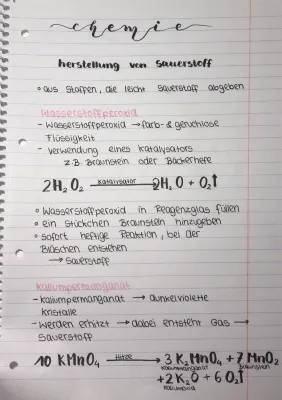 chemie
herstellung von Sauerstoff
° aus Stoffen, die leicht Sauerstoff abgeben
Wasserstoffperoxid
- Wasserstoffperoxid → farb- & geruchlose
Flüssigkeit
- Verwendung eines Katalysators
z.B. Braunstein oder Bäckerhefe
2H₂O₂ —Katalysator→ 2H₂O + O₂↑
° Wasserstoffperoxid in Reagenzglas füllen
° ein Stückchen Braunstein hinzugeben
° sofort heftige Reaktion, bei der
Bläschen entstehen
→ Sauerstoff
Kaliumpermanganat
- Kaliumpermanganat → dunkelviolette
Kristalle
- werden erhitzt → dabei entsteht Gas →
Sauerstoff
10 KMnO₄ —Hitze→ 3 K₂MnO₄ + 7 MnO₂
Kaliummanganat Braunstein
+ 2 K₂O + 6 O₂↑
Kaliumoxid